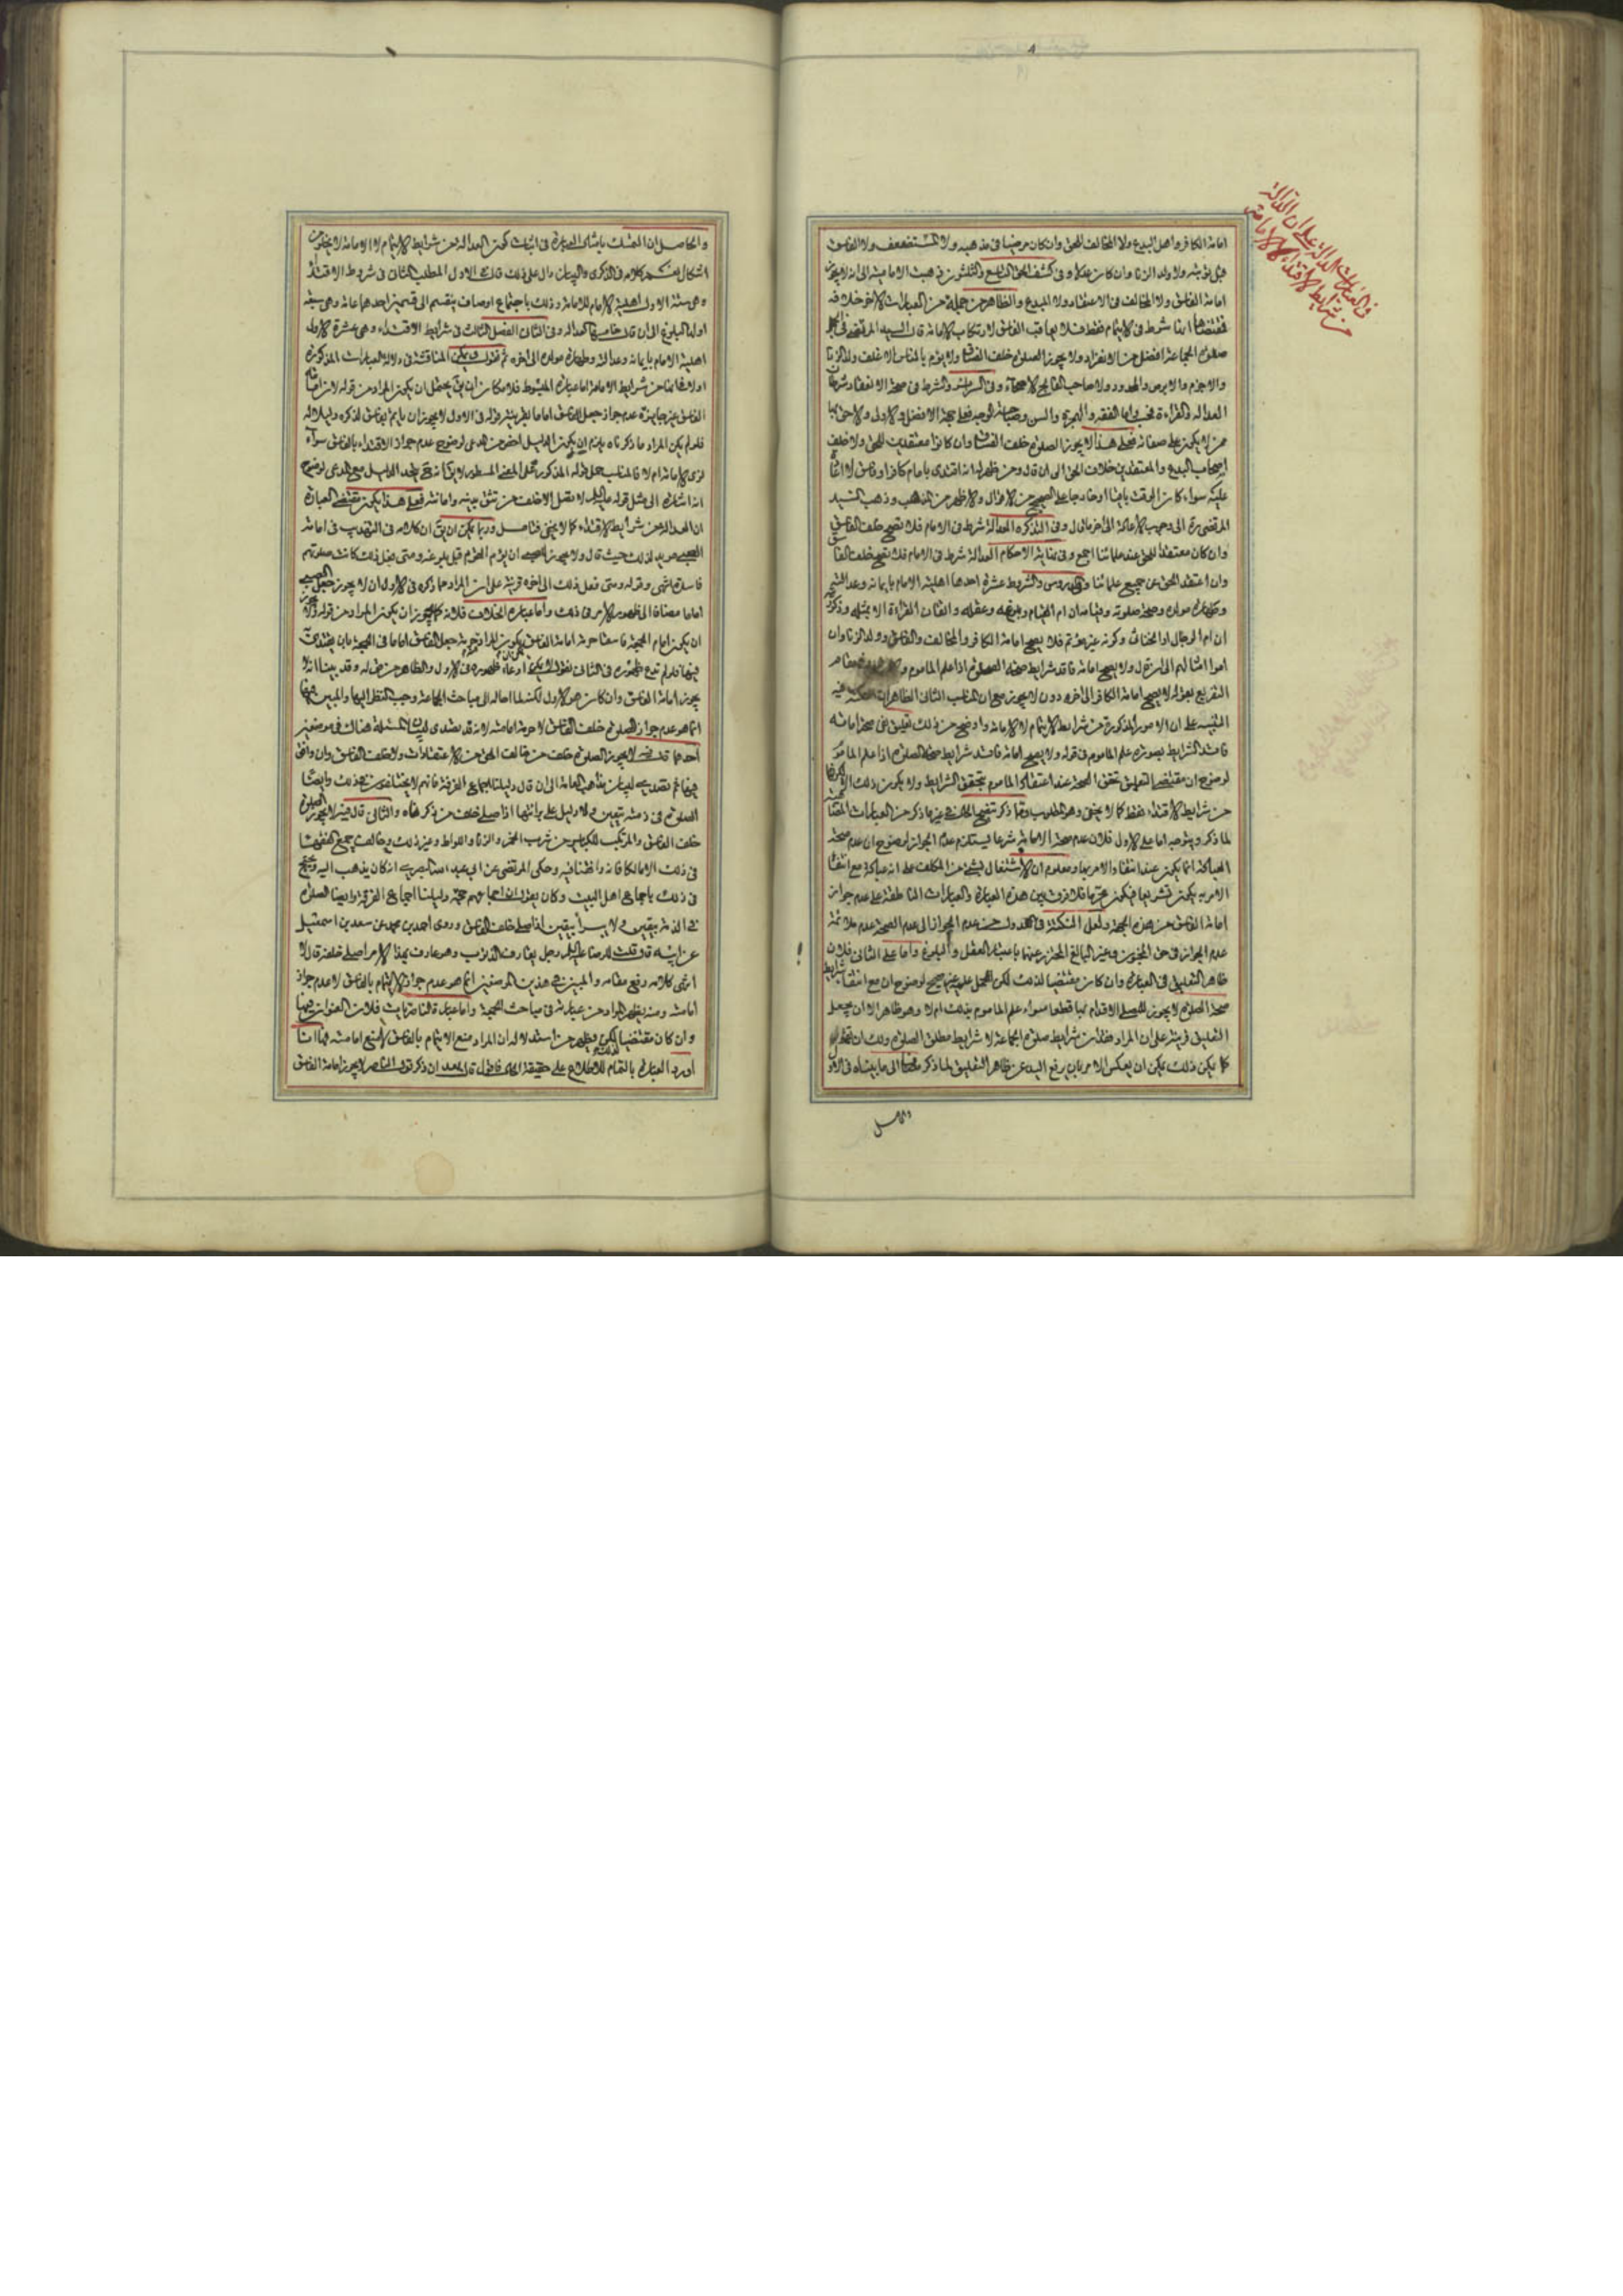 امامة الكافر واهل البدع ولا المخالف للحق وان كان مرضيا في مذهبه ولا المستضعف ولا الفاسق
قبل توبته ولا ولد الزنا وان كان عدلا وفي كشف الحق التاسع والثلثون ذهبت الامامية الى انه لا يجوز
امامة الفاسق ولا المخالف في الاعتقاد ولا المبدع والظاهر من جملة من العبارات الاخر خلافه
شرط في الايتمام فقط فلا يعاقب الفاسق لارتكاب الامامة قال السيد المرتضى في
صلوة الجماعة افضل من الانفراد ولا يجوز الصلوة خلف الفساق ولا يؤم بالناس الاغلف وولد الزنا
والاجذم والابرص والمحدود ولا صاحب الفالج الاصحاء وفي السرائر والشرط في صحة الانعقاد
العدالة والقراءة
ممن لا يكون على صفاته فعلى هذا لا يجوز الصلوة خلف الفساق وان كانوا معتقدين للحق ولا خلف
اصحاب البدع والمعتقدين خلاف الحق الى ان قال ومن ظهر له انه اقتدى بامام كافر او فاسق لا
عليه سواء كان الوقت باقيا او خارجا على الصحيح من الاقوال والاظهر من المذهب وذهب السيد
المرتضى ره الى وجوب الاعادة الى اخر ما قال وفي التذكره العدالة شرط في الامام فلا تصح خلف الفاسق
وان كان معتقدا للحق عند علمائنا اجمع وفي نهاية الاحكام العدالة شرط في الامام فلا تصح خلف
وان اعتقد الحق عن جميع علمائنا وفي الدروس والشروط عشرة احدها اهلية الامام بايمانه وعدالته
وطهارة مولده وصحة صلوته وقيامه ان ام القيام وبلوغه وعقله واتقان القراءة الا بمثله وذكورته
ان ام الرجال او الخناثى وكونه غير مؤتم فلا يصح امامة الكافر والمخالف والفاسق وولد الزنا وان
اموا امثالهم الى ان قال ولا يصح امامة فاقد شرايط صحة الصلوة اذا علم الماموم
التفريع بقوله لا يصح امامة الكافر الى اخره دون لا يجوز مع ان المناسب الثاني
التنبيه على ان الامور المذكورة من شرايط الايتمام لا الامامة واوضح من ذلك تعليق نفي صحة امامة
فاقد الشرايط بصورة علم الماموم في قوله ولا يصح امامة فاقد شرايط صحة الصلوة اذا علم الماموم
لوضوح ان مقتضى التعليق تحقق الصحة عند اعتقاد الماموم بتحقق الشرايط ولا يكون ذلك الا
من شرايط الاقتداء فقط كما لا يخفى وهو المطلوب
لما ذكر وتوجه اما على الاول فلان عدم صحة الامامة شرعا يستلزم عدم الجواز لوضوح ان عدم صحة
العبادة انما يكون عند انتفاء الامر بها ومعلوم ان الاشتغال بشئ من المكلف على انه عبادة مع انتفاء
الامر به يكون تشريعا فيكون محرما فلا فرق بين هذه العبارة والعبارات الناطقة على عدم جواز
امامة الفاسق من هذه الجهة ولعل النكتة في العدول من عدم الجواز الى عدم الصحة عدم ملائمة
عدم الجواز في حق المجنون وغير البالغ المحترز عنهما باعتبار العقل والبلوغ واما على الثاني فلان
ظاهر التعليق في العبارة وان كان مقتضيا لذلك لكن الحمل عليه غير صحيح لوضوح ان مع انتفاء شرايط
صحة الصلوة لا يجوز للمصلي الاقدام بها قطعا سواء علم الماموم بذلك ام لا وهو ظاهر الا ان يجعل
التعليق قرينة على ان المراد فقد شرايط صلوة الجماعة لا شرايط مطلق الصلوة ولك ان تقول
كما يمكن ذلك يمكن ان يعكس الامر بان يرفع اليد عن ظاهر التعليق لما ذكر مضافا الى ما بيناه في
والحاصل
في العبارات الدالة على ان العدالة
من شرايط الاقتداء لا الامامة
والحاصل ان التمسك بامثال العبارة في اثبات كون العدالة من شرايط الايتمام لا الامامة لا يخلو من
اشكال نعم كلامه في الذكرى والبيان دال على ذلك قال في الاول المطلب الثاني في شروط الاقتداء
وهي ستة الاول اهلية الامام للامامة وذلك باجتماع اوصاف ينقسم الى قسمين احدهما عامة وهي سبعة
اولها البلوغ الى ان قال خامسها العدالة وفي الثاني الفصل الثالث في شرايط الاقتداء وهي عشرة الاول
اهلية الامام بايمانه وعدالته وطهارة مولده الى اخره ثم نقول يمكن المناقشة في دلالة العبارات المذكورة
الفاسق غير جايزة عدم جواز جعل الفاسق اماما بقرينة قوله في الاول لا يجوز ان يأتم بفاسق
فلو لم يكن المراد ما ذكرناه يلزم ان يكون الدليل اخص من المدعى لوضوح عدم جواز الاقتداء بالفاسق سواء
نوى الامامة ام لا
انه اشارة الى مثل قوله عليه السلم لا تصل الا خلف من تثق بدينه وامانته فعلى هذا يكون مقتضى العبارة
ان العدالة من شرايط الاقتداء كما لا يخفى فتامل وربما يمكن ان يق ان كلامه في التهذيب في امامة
الصبي مؤيد لذلك حيث قال ولا يجوز للصبي ان يؤم القوم قبل بلوغه ومتى فعل ذلك كانت صلوتهم
فاسدة انتهى وقوله ومتى فعل ذلك الى اخره قرينة على ان المراد مما ذكره في الاول انه لا يجوز جعل الصبي
اماما مضافا الى ظهور الامر في ذلك واما عبارة الخلاف فلانه كما يجوز ان يكون المراد من قوله
ان يكون امام الجمعة فاسقا حرمة امامة الفاسق يكون المراد حرمة جعل الفاسق اماما في الجمعة بان يقتدى
يجوز امامة الفاسق وان كان هو الاول لكنه لما احاله الى مباحث الجماعة وجب النظر اليها والمبين فيها
انما هو عدم جواز الصلوة خلف الفاسق لا حرمة امامته لانه قد تصدى لبيان المسئلة هناك في موضعين
احدهما قال فيه لا يجوز الصلوة خلف من خالف الحق من الاعتقادات ولا خلف الفاسق وان وافق
فيها ثم تصدى لبيان مذاهب العامة الى ان قال دليلنا اجماع الفرقة فانهم لا يختلفون في ذلك وايضا
الصلوة في ذمته بيقين ولا دليل على برائتها اذا صلى خلف من ذكرناه والثاني قال فيه لا يجوز الصلوة
خلف الفاسق المرتكب للكباير من شرب الخمر والزنا واللواط وغير ذلك وخالف جميع الفقهاء
في ذلك الا مالكا فانه وافقنا فيه وحكى المرتضى عن ابي عبد الله البصري انه كان يذهب اليه ويحتج
في ذلك باجماع اهل البيت وكان يقول اجماعهم حجة دليلنا اجماع الفرقة وايضا الصلوة
في الذمة بيقين ولا يبرأ بيقين اذا صلى خلف الفاسق وروى احمد بن محمد عن سعد بن اسمعيل
عن ابيه قال قلت للرضا عليه السلم رجل يقارف الذنوب وهو عارف بهذا الامر اصلي خلفه قال لا
انتهى كلامه رفع مقامه والمبين في هذين الموضعين انما هو عدم جواز الايتمام بالفاسق لا عدم جواز
امامته ومنه يظهر المراد من عبارته في مباحث الجمعة واما عبارة الناصريات فلان العنوان فيها
وان كان مقتضيا لذلك لكن يظهر من استدلاله ان المراد منع الايتمام بالفاسق لا منع امامته
اورد العبارة بالتمام للاطلاع على حقيقة الحال فاقول قال بعد ان ذكر قول الناصر لا يجوز امامة الفاسق